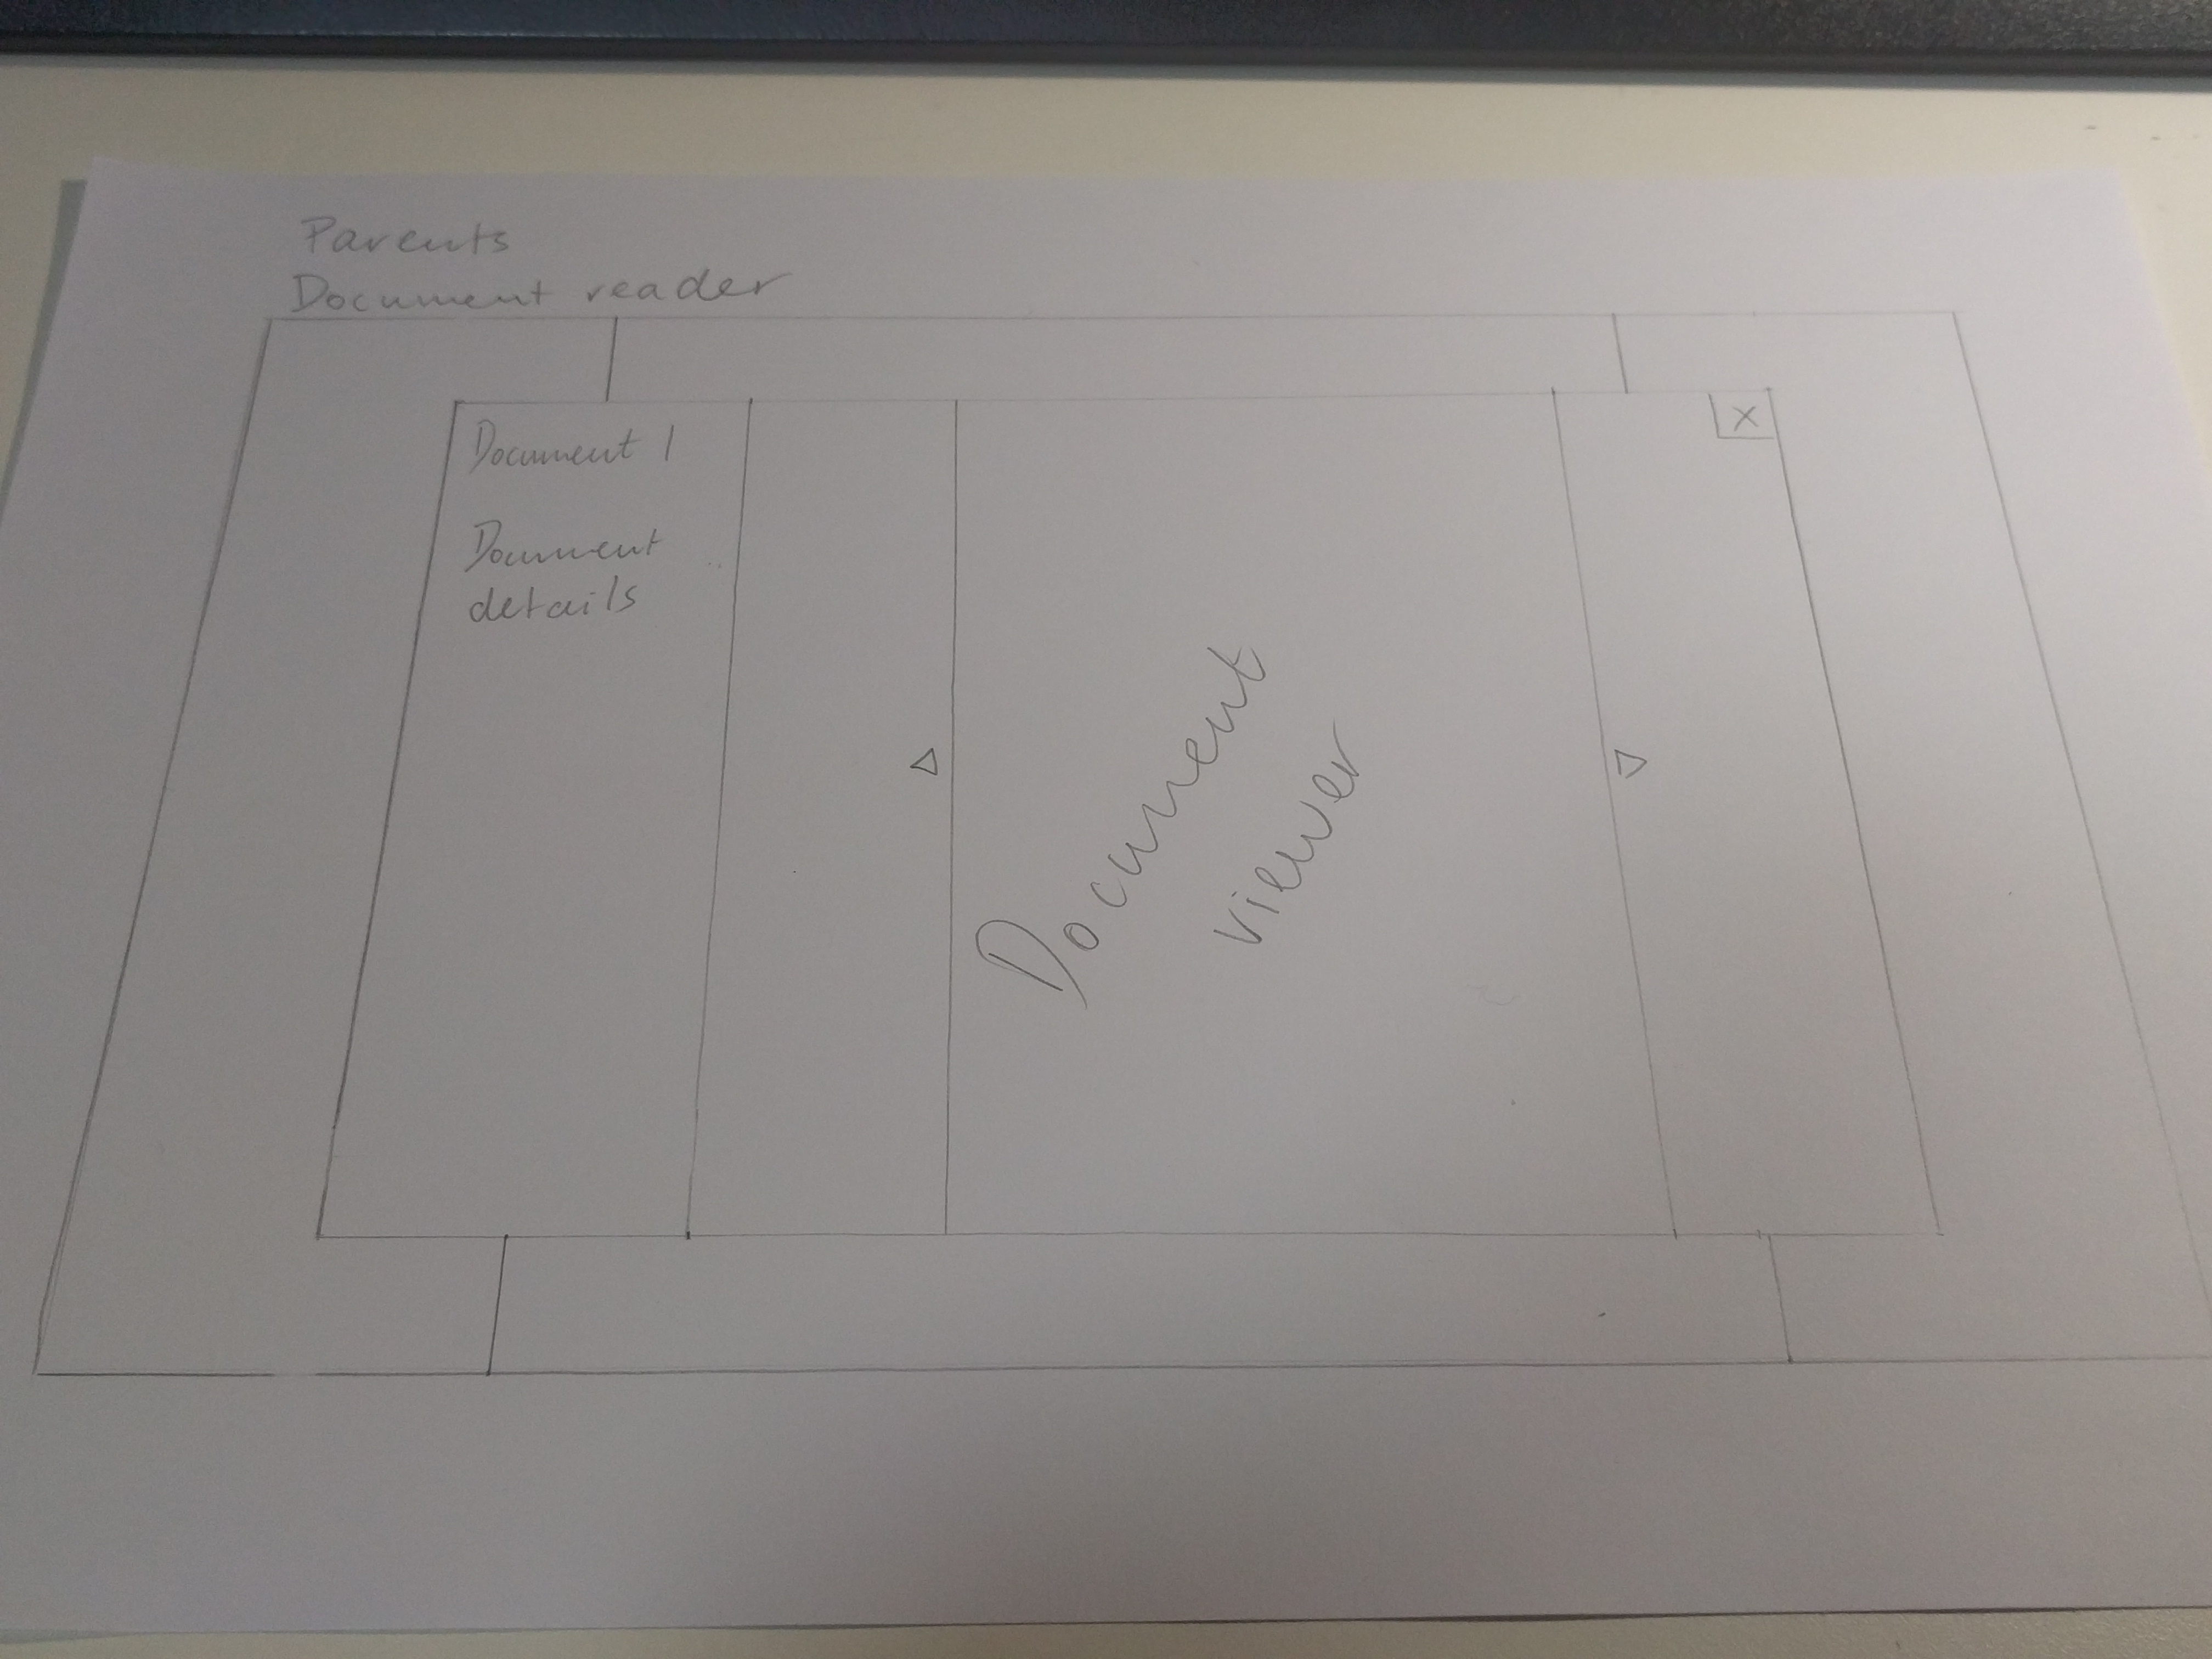 Parents
Document reader
Document 1
X
Document
details
Document
viewer